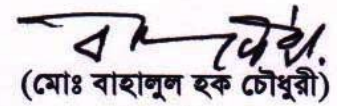 (মোঃ বাহালুল হক চৌধুরী)